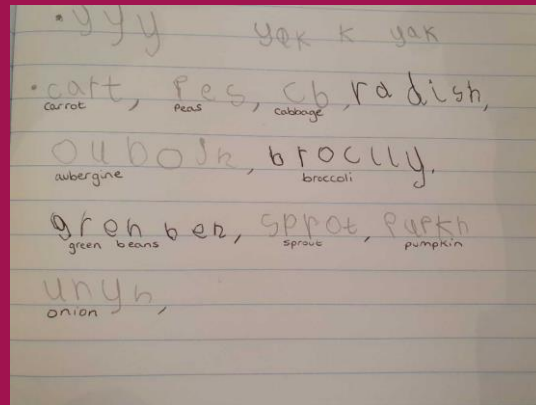 • y y y yek k yak
• cart, Pes, cb, radish,
carrot peas cabbage
ouboJn, broclly.
aubergine broccoli
grenben, sppot, pupkn
green beans sprout pumpkin
unyn,
onion